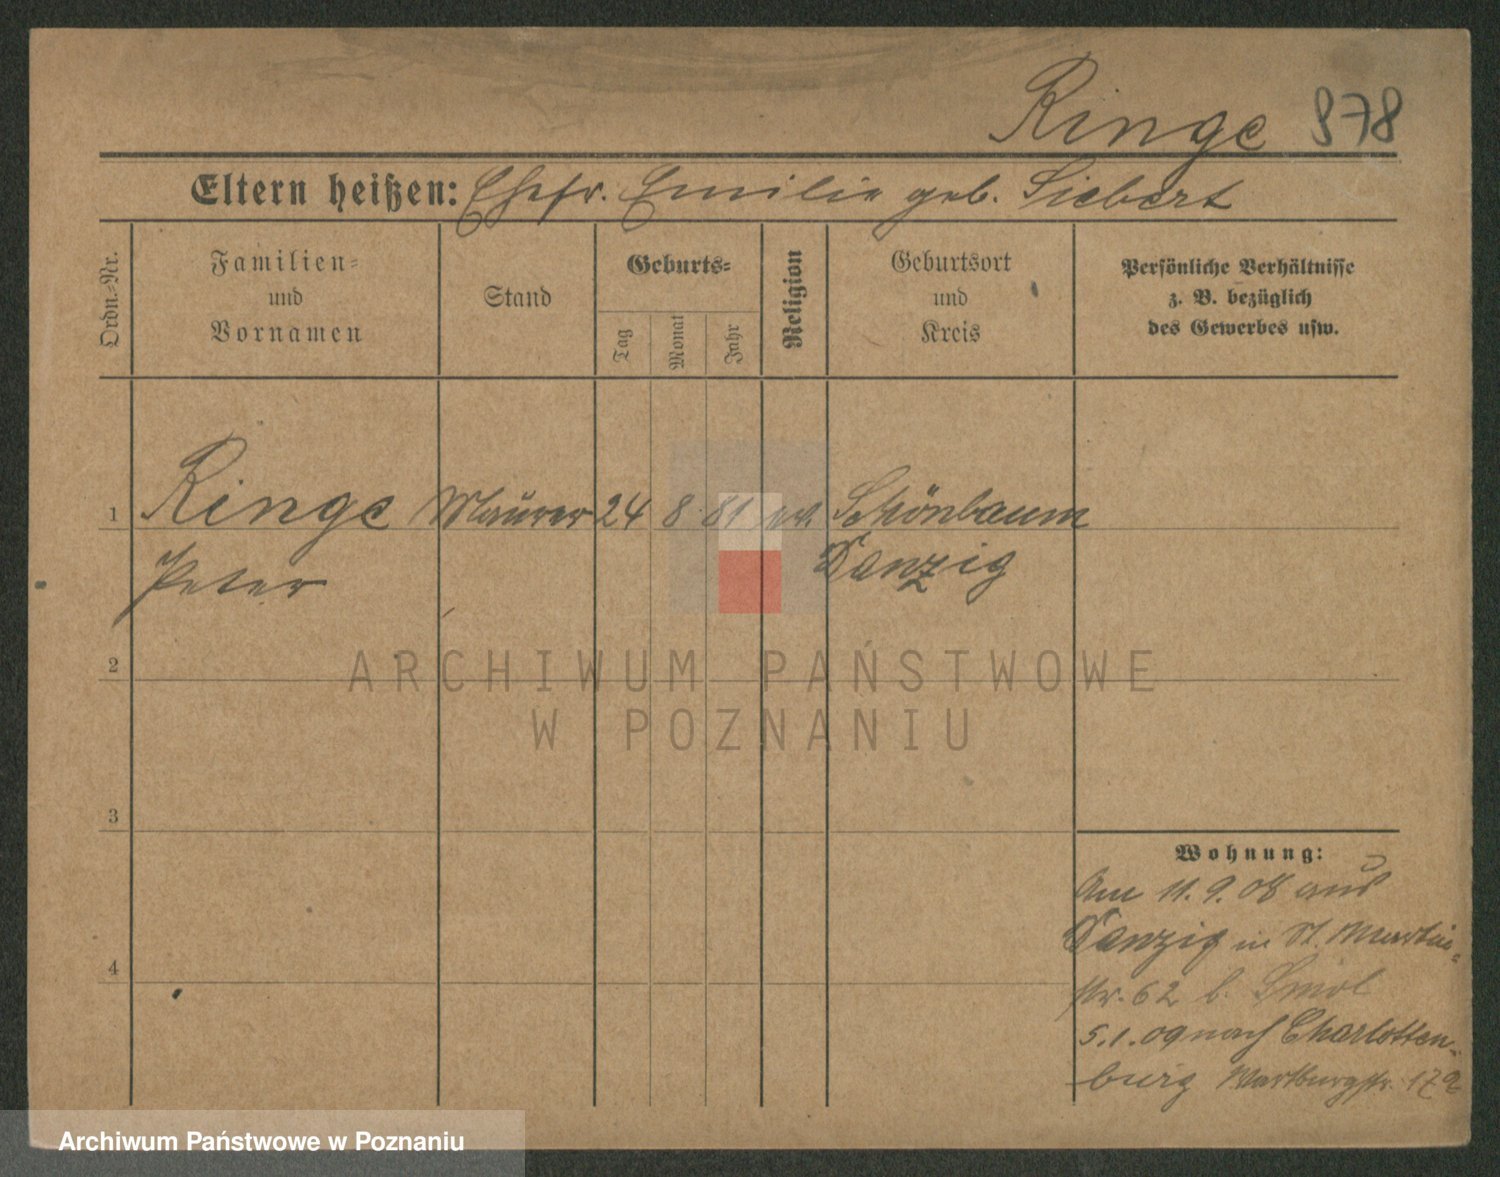 Ringe 978
Eltern heißen: Ehefr. Emilie geb. Siebert
Ordn.-Nr.
Familien-
und
Vornamen
Stand
Geburts-
Tag
Monat
Jahr
Religion
Geburtsort
und
Kreis
Persönliche Verhältnisse
z. B. bezüglich
des Gewerbes usw.
1 Ringe Maurer 24 8 81 ev. Schönbaum
Peter Danzig
2
ARCHIWUM PAŃSTWOWE
W POZNANIU
3
Wohnung:
Am 11.9.08 aus
Danzig in St. Martin-
4
str. 62 b.
5.1.09 nach Charlotten-
burg Wartburgstr.
Archiwum Państwowe w Poznaniu